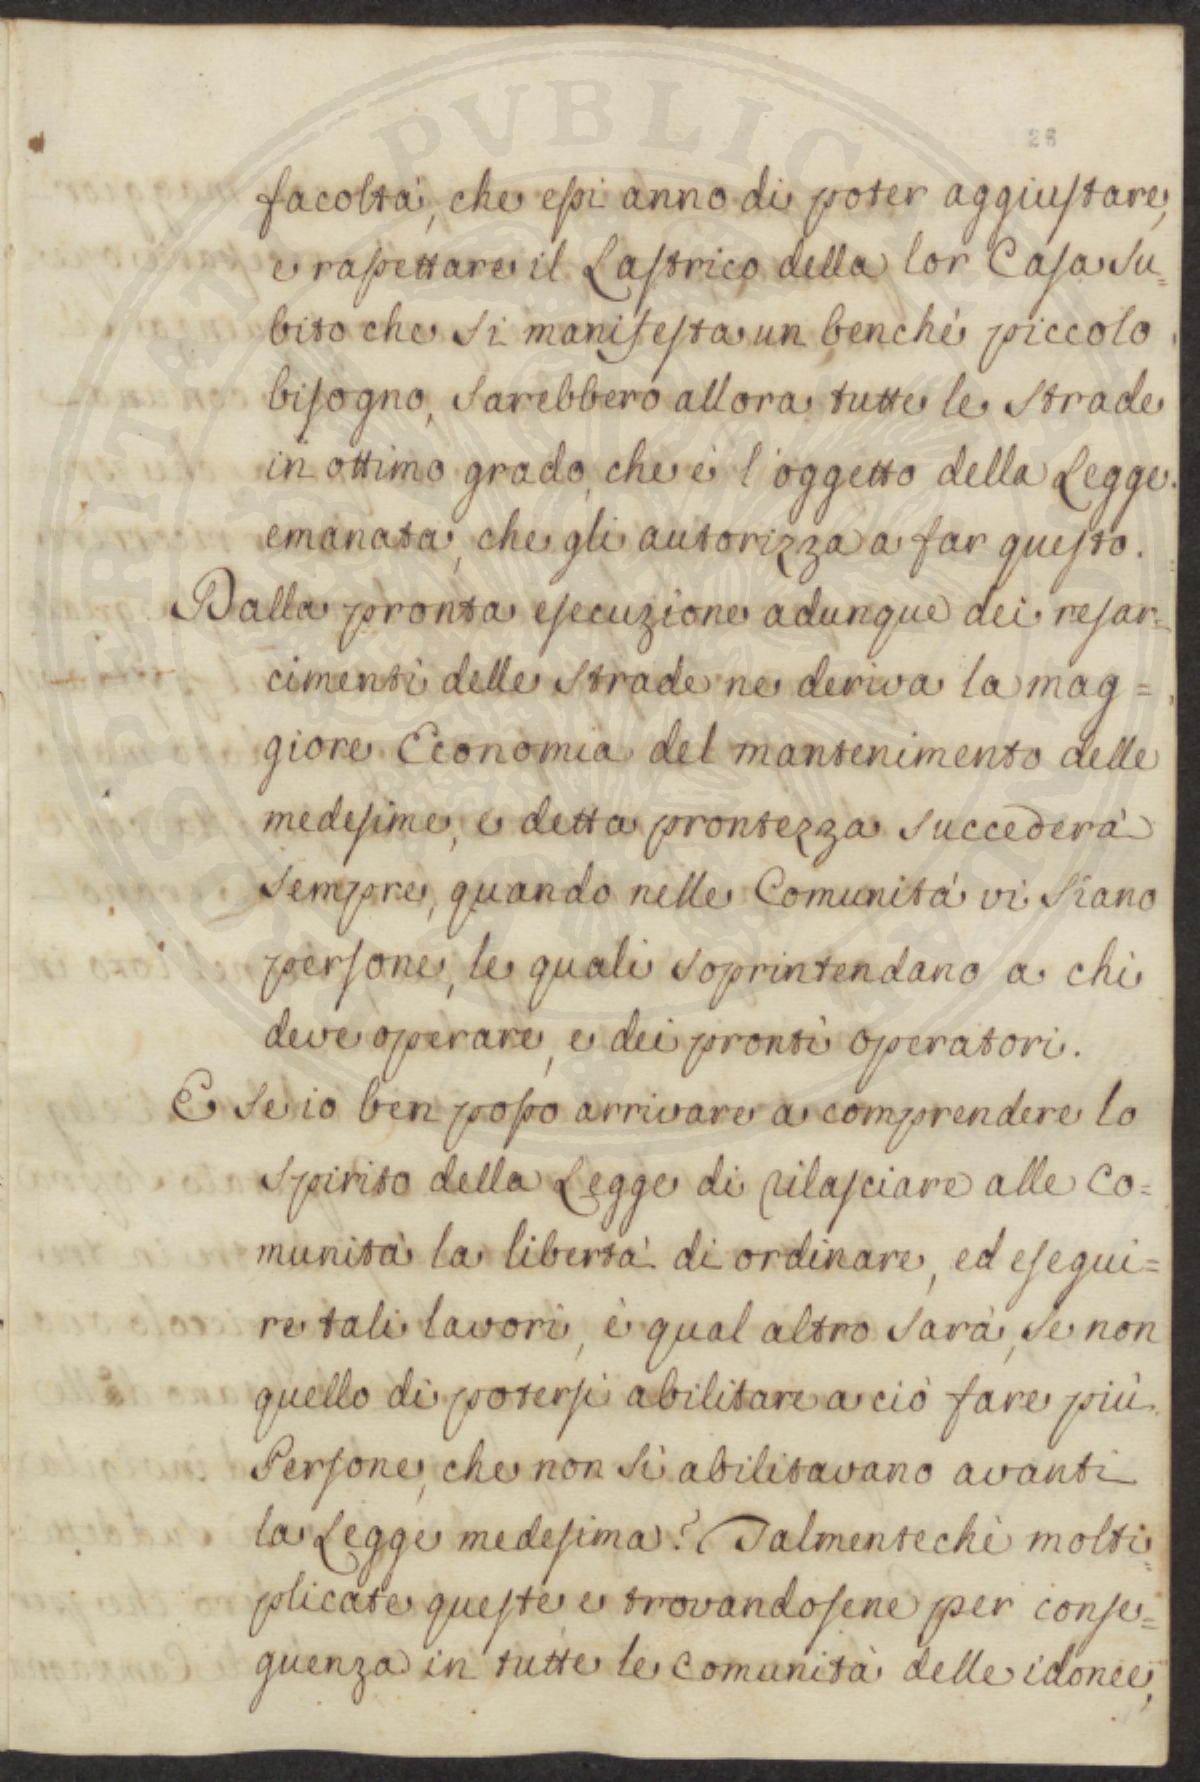 PVBLICAE
28
facoltà, che essi anno di poter aggiustare,
e rassettare il Lastrico della lor Casa su=
bito che si manifesta un benchè piccolo
bisogno, sarebbero allora tutte le strade
in ottimo grado, che è l'oggetto della Legge
emanata, che gli autorizza a far questo.
Dalla pronta esecuzione adunque dei resar=
cimenti delle strade ne deriva la mag=
giore Economia del mantenimento delle
medesime, e detta prontezza succederà
sempre, quando nelle Comunità vi siano
persone, le quali soprintendano a chi
deve operare, e dei pronti operatori.
E se io ben posso arrivare a comprendere lo
spirito della Legge di rilasciare alle Co=
munità la libertà di ordinare, ed esegui=
re tali lavori, è qual altro sarà, se non
quello di potersi abilitare a ciò fare più
Persone, che non si abilitavano avanti
la Legge medesima? Talmentechè molti=
plicate queste e trovandosene per conse=
guenza in tutte le Comunità delle idonee,